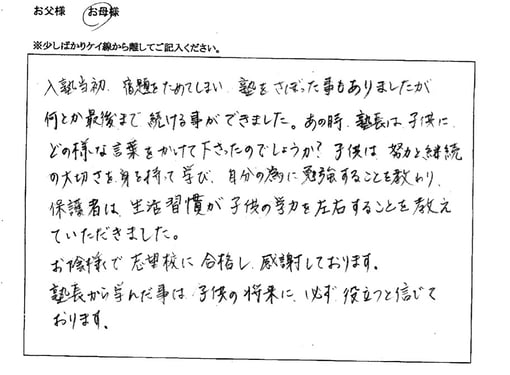 お父様　お母様
※少しばかりケイ線から離してご記入ください。
入塾当初、宿題をためてしまい、塾をさぼった事もありましたが
何とか最後まで続ける事ができました。あの時、塾長は子供に
どの様な言葉をかけて下さったのでしょうか？子供は努力と継続
の大切さを身を持って学び、自分の為に勉強することを教わり、
保護者は、生活習慣が子供の学力を左右することを教え
ていただきました。
お陰様で志望校に合格し、感謝しております。
塾長から学んだ事は、子供の将来に、必ず役立つと信じて
おります。